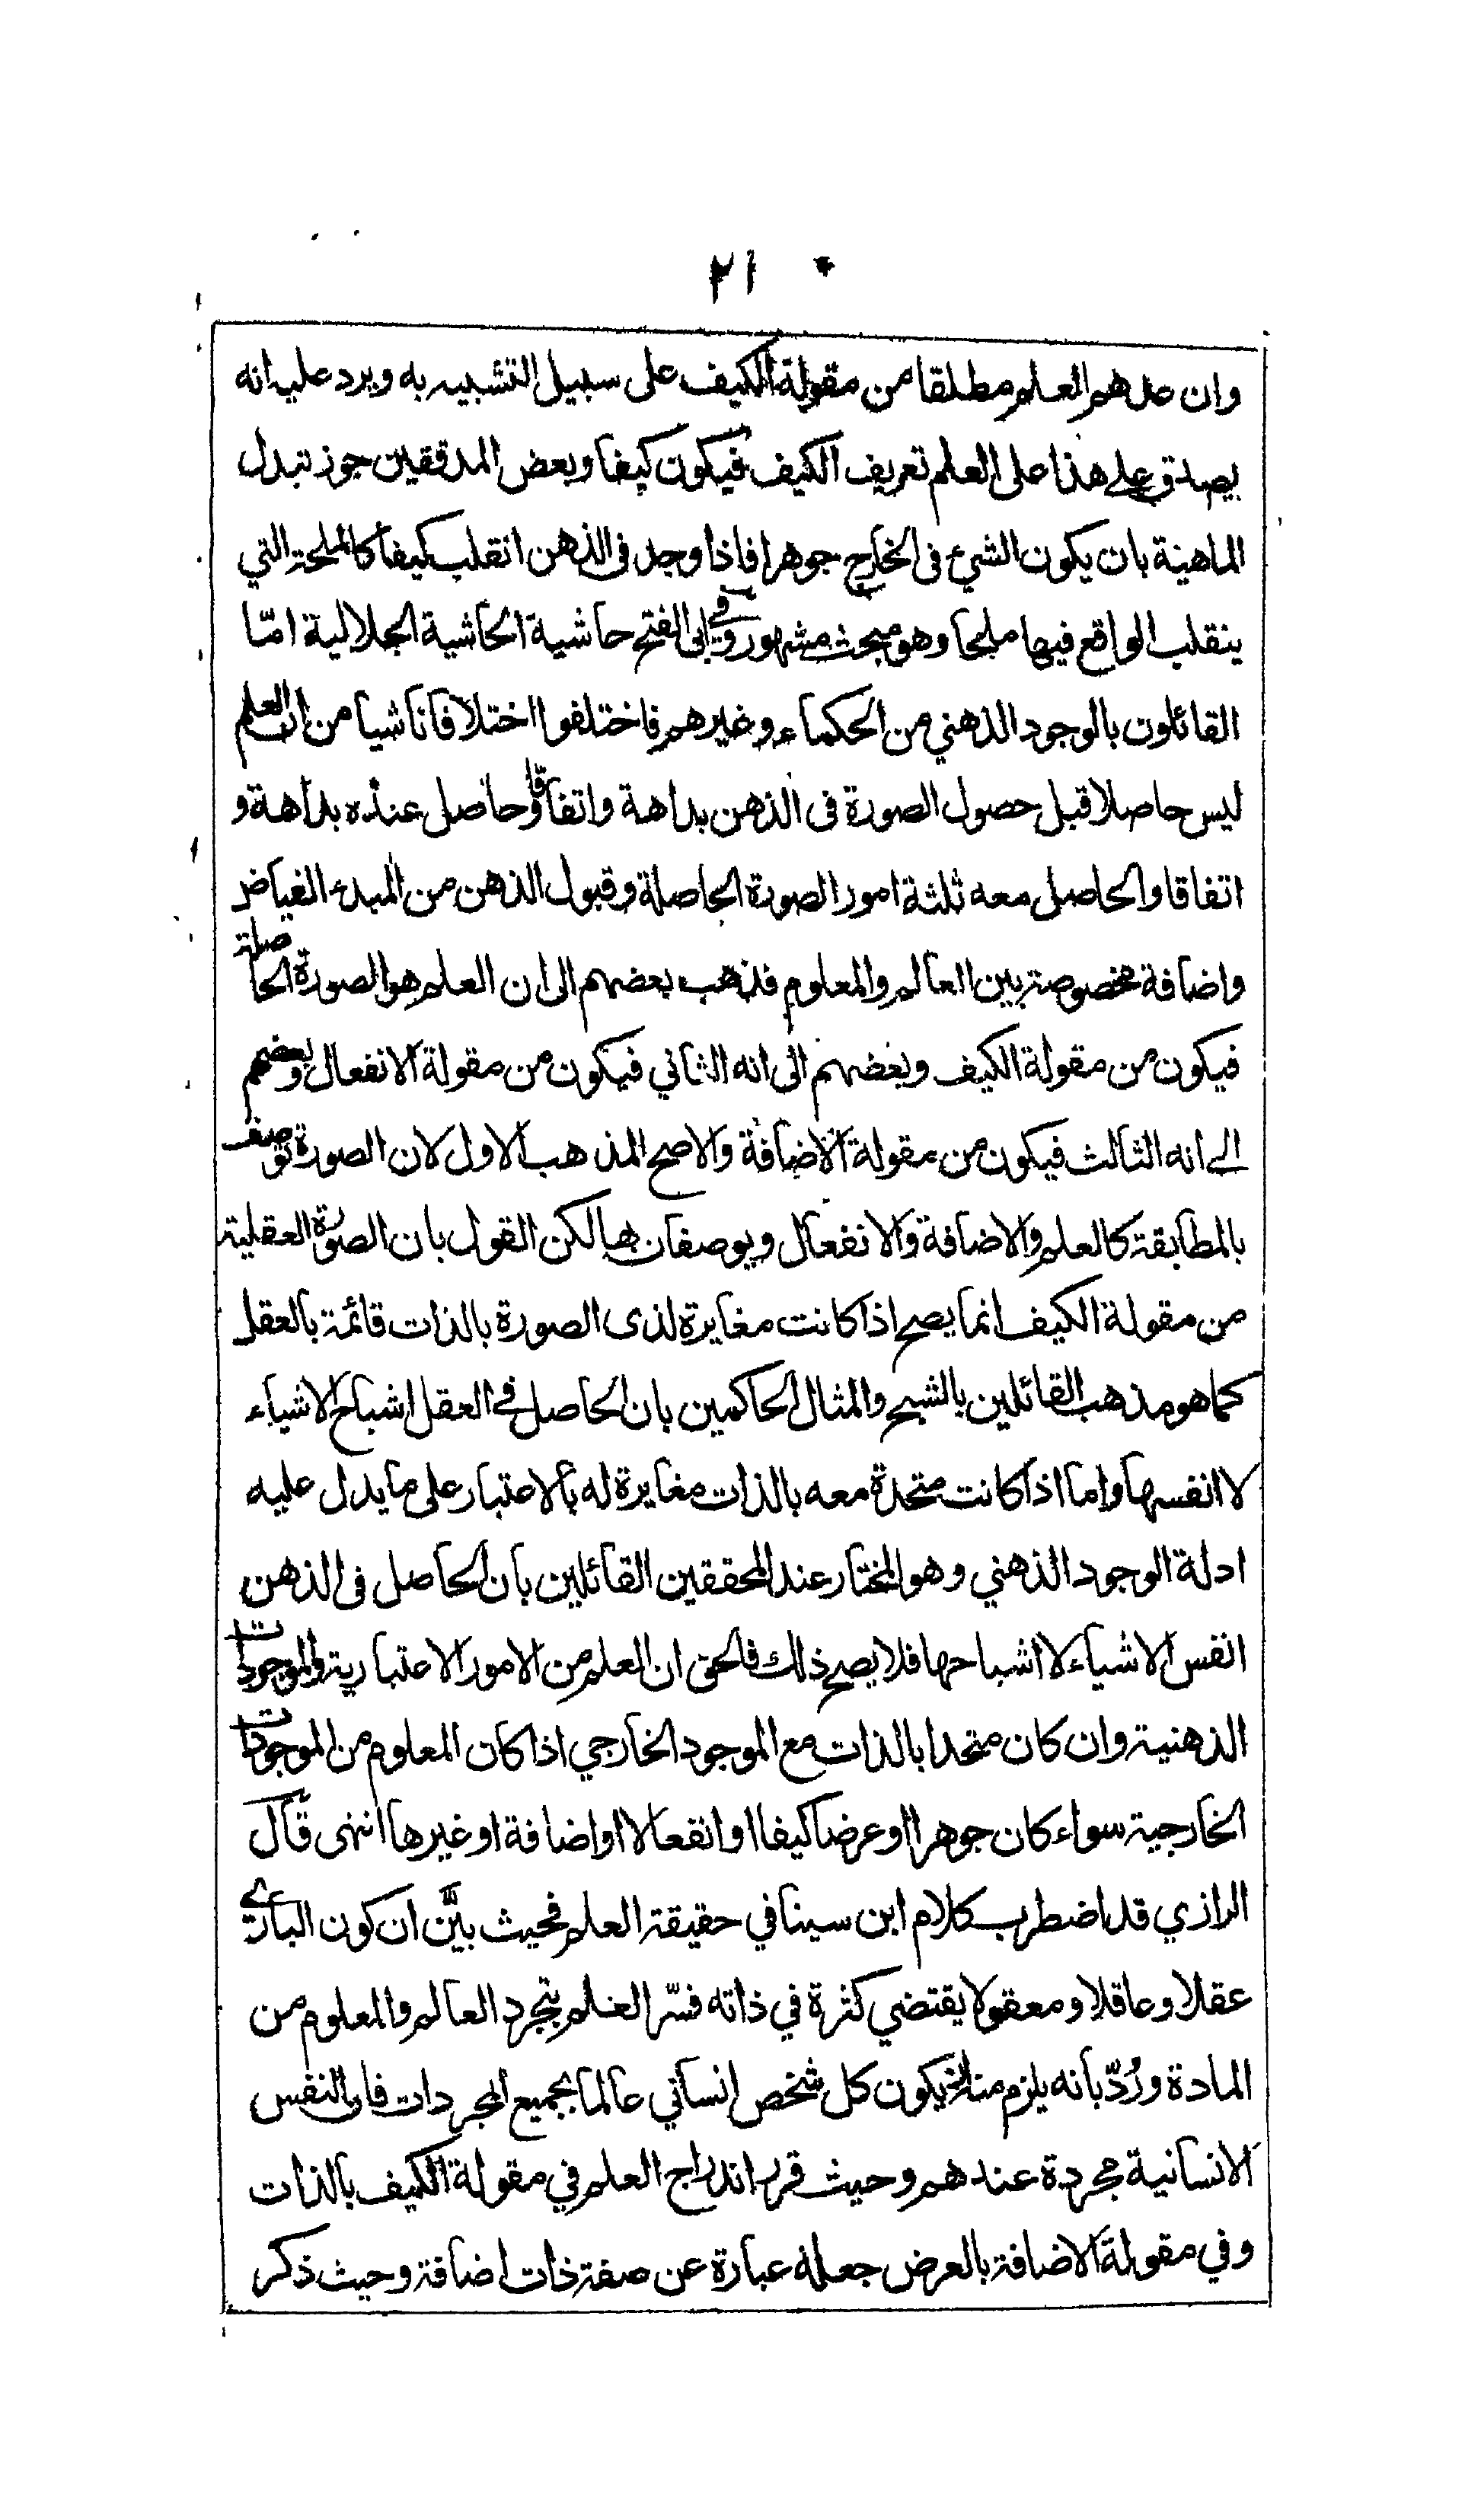 ٢١
وان عدهم العلم مطلقا من مقولة الكيف على سبيل التشبيه به ويرد عليه انه
يصدق على هذا على العلم تعريف الكيف فيكون كيفا وبعض المدققين جوز تبدل
الماهية بان يكون الشيء فى الخارج جوهرا فاذا وجد فى الذهن انقلب كيفا كالملحة التي
ينقلب الواقع فيها ملحا وهو مبحث مشهور وفي ابى الفتح حاشية الحاشية الجلالية امّا
القائلون بالوجود الذهني من الحكماء وغيرهم فاختلفوا اختلافا ناشيا من ان العلم
ليس حاصلا قبل حصول الصورة فى الذهن بداهة واتفاقا وحاصل عنده بداهة و
اتفاقا والحاصل معه ثلثة امور الصورة الحاصلة وقبول الذهن من المبدء الفياض
واضافة مخصوصة بين العالم والمعلوم فذهب بعضهم الى ان العلم هو الصورة الحاصلة
فيكون من مقولة الكيف وبعضهم الى انه الثاني فيكون من مقولة الانفعال وبعضهم
الى انه الثالث فيكون من مقولة الاضافة والاصح المذهب الاول لان الصورة توصف
بالمطابقة كالعلم والاضافة والانفعال ويوصفان بها لكن القول بان الصورة العقلية
من مقولة الكيف انما يصح اذا كانت مغايرة لذى الصورة بالذات قائمة بالعقل
كما هو مذهب القائلين بالشبح والمثال الحاكمين بان الحاصل في العقل اشباح الاشياء
لا انفسها واما اذا كانت متحدة معه بالذات مغايرة له بالاعتبار على ما يدل عليه
ادلة الوجود الذهني وهو المختار عند المحققين القائلين بان الحاصل فى الذهن
انفس الاشياء لا اشباحها فلا يصح ذلك فالحق ان العلم من الامور الاعتبارية والموجودات
الذهنية وان كان متحدا بالذات مع الموجود الخارجي اذا كان المعلوم من الموجودات
الخارجية سواء كان جوهرا او عرضا كيفا او انفعالا او اضافة او غيرها انتهى قال
الرازي قد اضطرب كلام ابن سينا في حقيقة العلم فحيث بيَّن ان كون الباري
عقلا وعاقلا ومعقولا يقتضي كثرة في ذاته فسّر العلم بتجرد العالم والمعلوم من
المادة ورُدّ بانه يلزم منه ان يكون كل شخص انساني عالما بجميع المجردات فان النفس
الانسانية مجردة عندهم وحيث قرر اندراج العلم في مقولة الكيف بالذات
وفي مقولة الاضافة بالعرض جعله عبارة عن صفة ذات اضافة وحيث ذكر